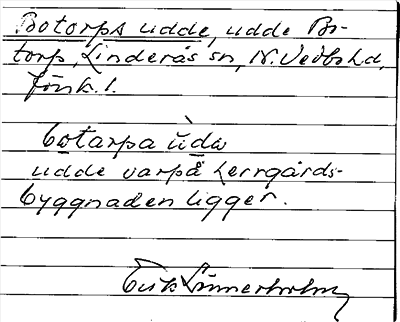 Botorps udde, udde Bo-
torp, Linderås sn, N. Vedbo hd,
Jönk. l.
botarpa ùdw
udde varpå herrgårds-
byggnaden ligger.
Erik Linnerholm